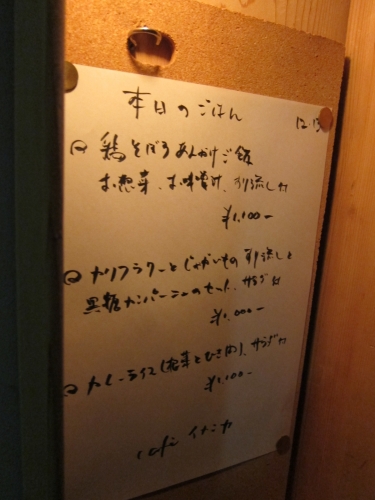 本日のごはん 12.13
鶏そぼろあんかけご飯
お惣菜、お味噌汁、すり流し付
¥1,100-
カリフラワーとじゃがいものすり流しと
黒糖カンパーニュのセット、サラダ付
¥1,000-
カレーライス(根菜とひき肉)、サラダ付
¥1,100-
cafe イカニカ